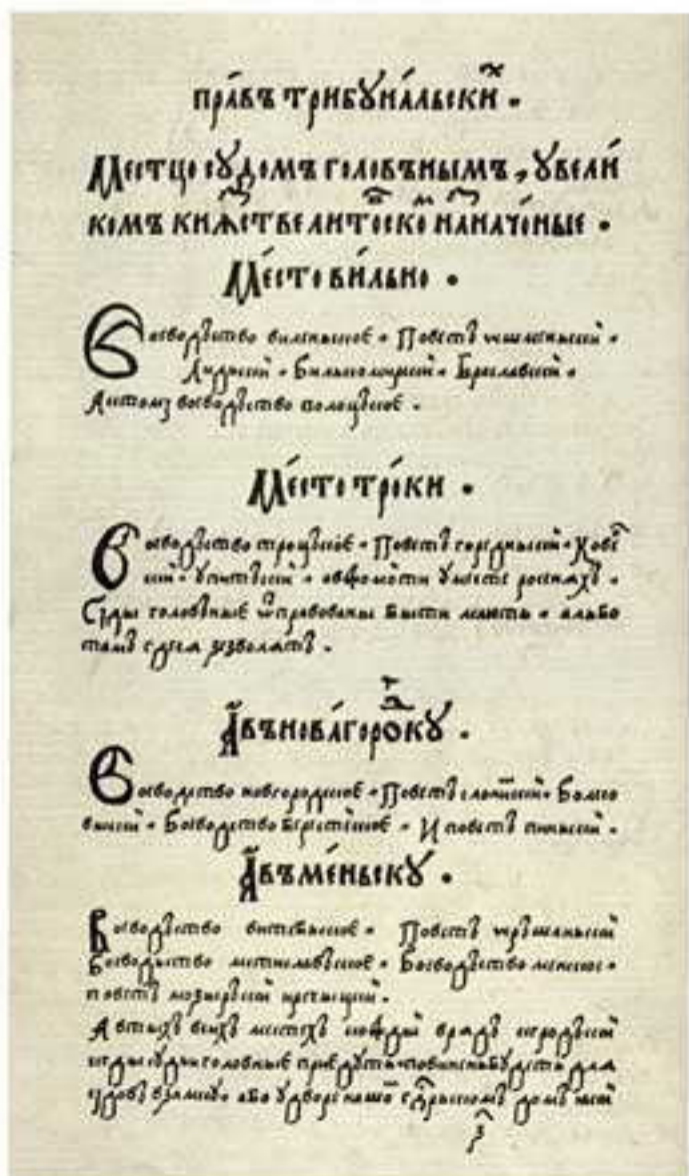 правъ трибꙋналъски х .
Местцо сꙋдомъ головънымъ , ꙋвели
комъ кнѧжстве литовском назначоные .
Место вильно .
Воеводъство виленъское . Поветъ ошменьский .
Лидъский . Вилькомирский . Браславский .
Ктомꙋ воеводъство полоцъкое .
Место троки .
Воеводъство троцъкое . Поветъ городеньский . Ковен
ский . Упитъский .
Сꙋды головъные отправованы быти мають . альбо
тамъ где зезволѧтъ .
Авъновагородкꙋ .
Воеводство новгородское . Поветъ слонимский . Волко
выский . Воеводство Берестейское . И поветъ пинъский .
Авъменьскꙋ .
Воеводъство витебъское . Поветъ оръшаньский
Воеводъство мстиславъское . Воеводъство менское .
поветъ мозыръский речыцкий .
А втыхъ всихъ местехъ кождый врѧдъ кгродъский
кгды сꙋдьи головные приедꙋть . повиненъ бꙋдеть длѧ